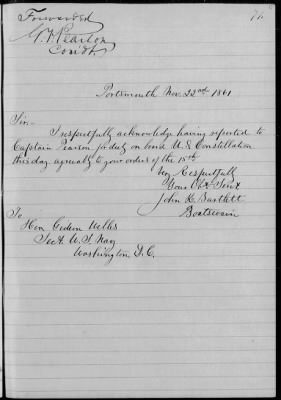 Forwarded
G. F. Pearson
Comdt
Portsmouth Nov. 22nd 1861
Sir:-
I respectfully acknowledge having reported to
Captain Pearson for duty on board U.S. Constellation
this day agreeably to your orders of the 18th
Very Respectfully
Your Obt Servt
John K. Bartlett
Boatswain
To
Hon Gideon Welles
Sect. U. S. Navy
Washington D. C.